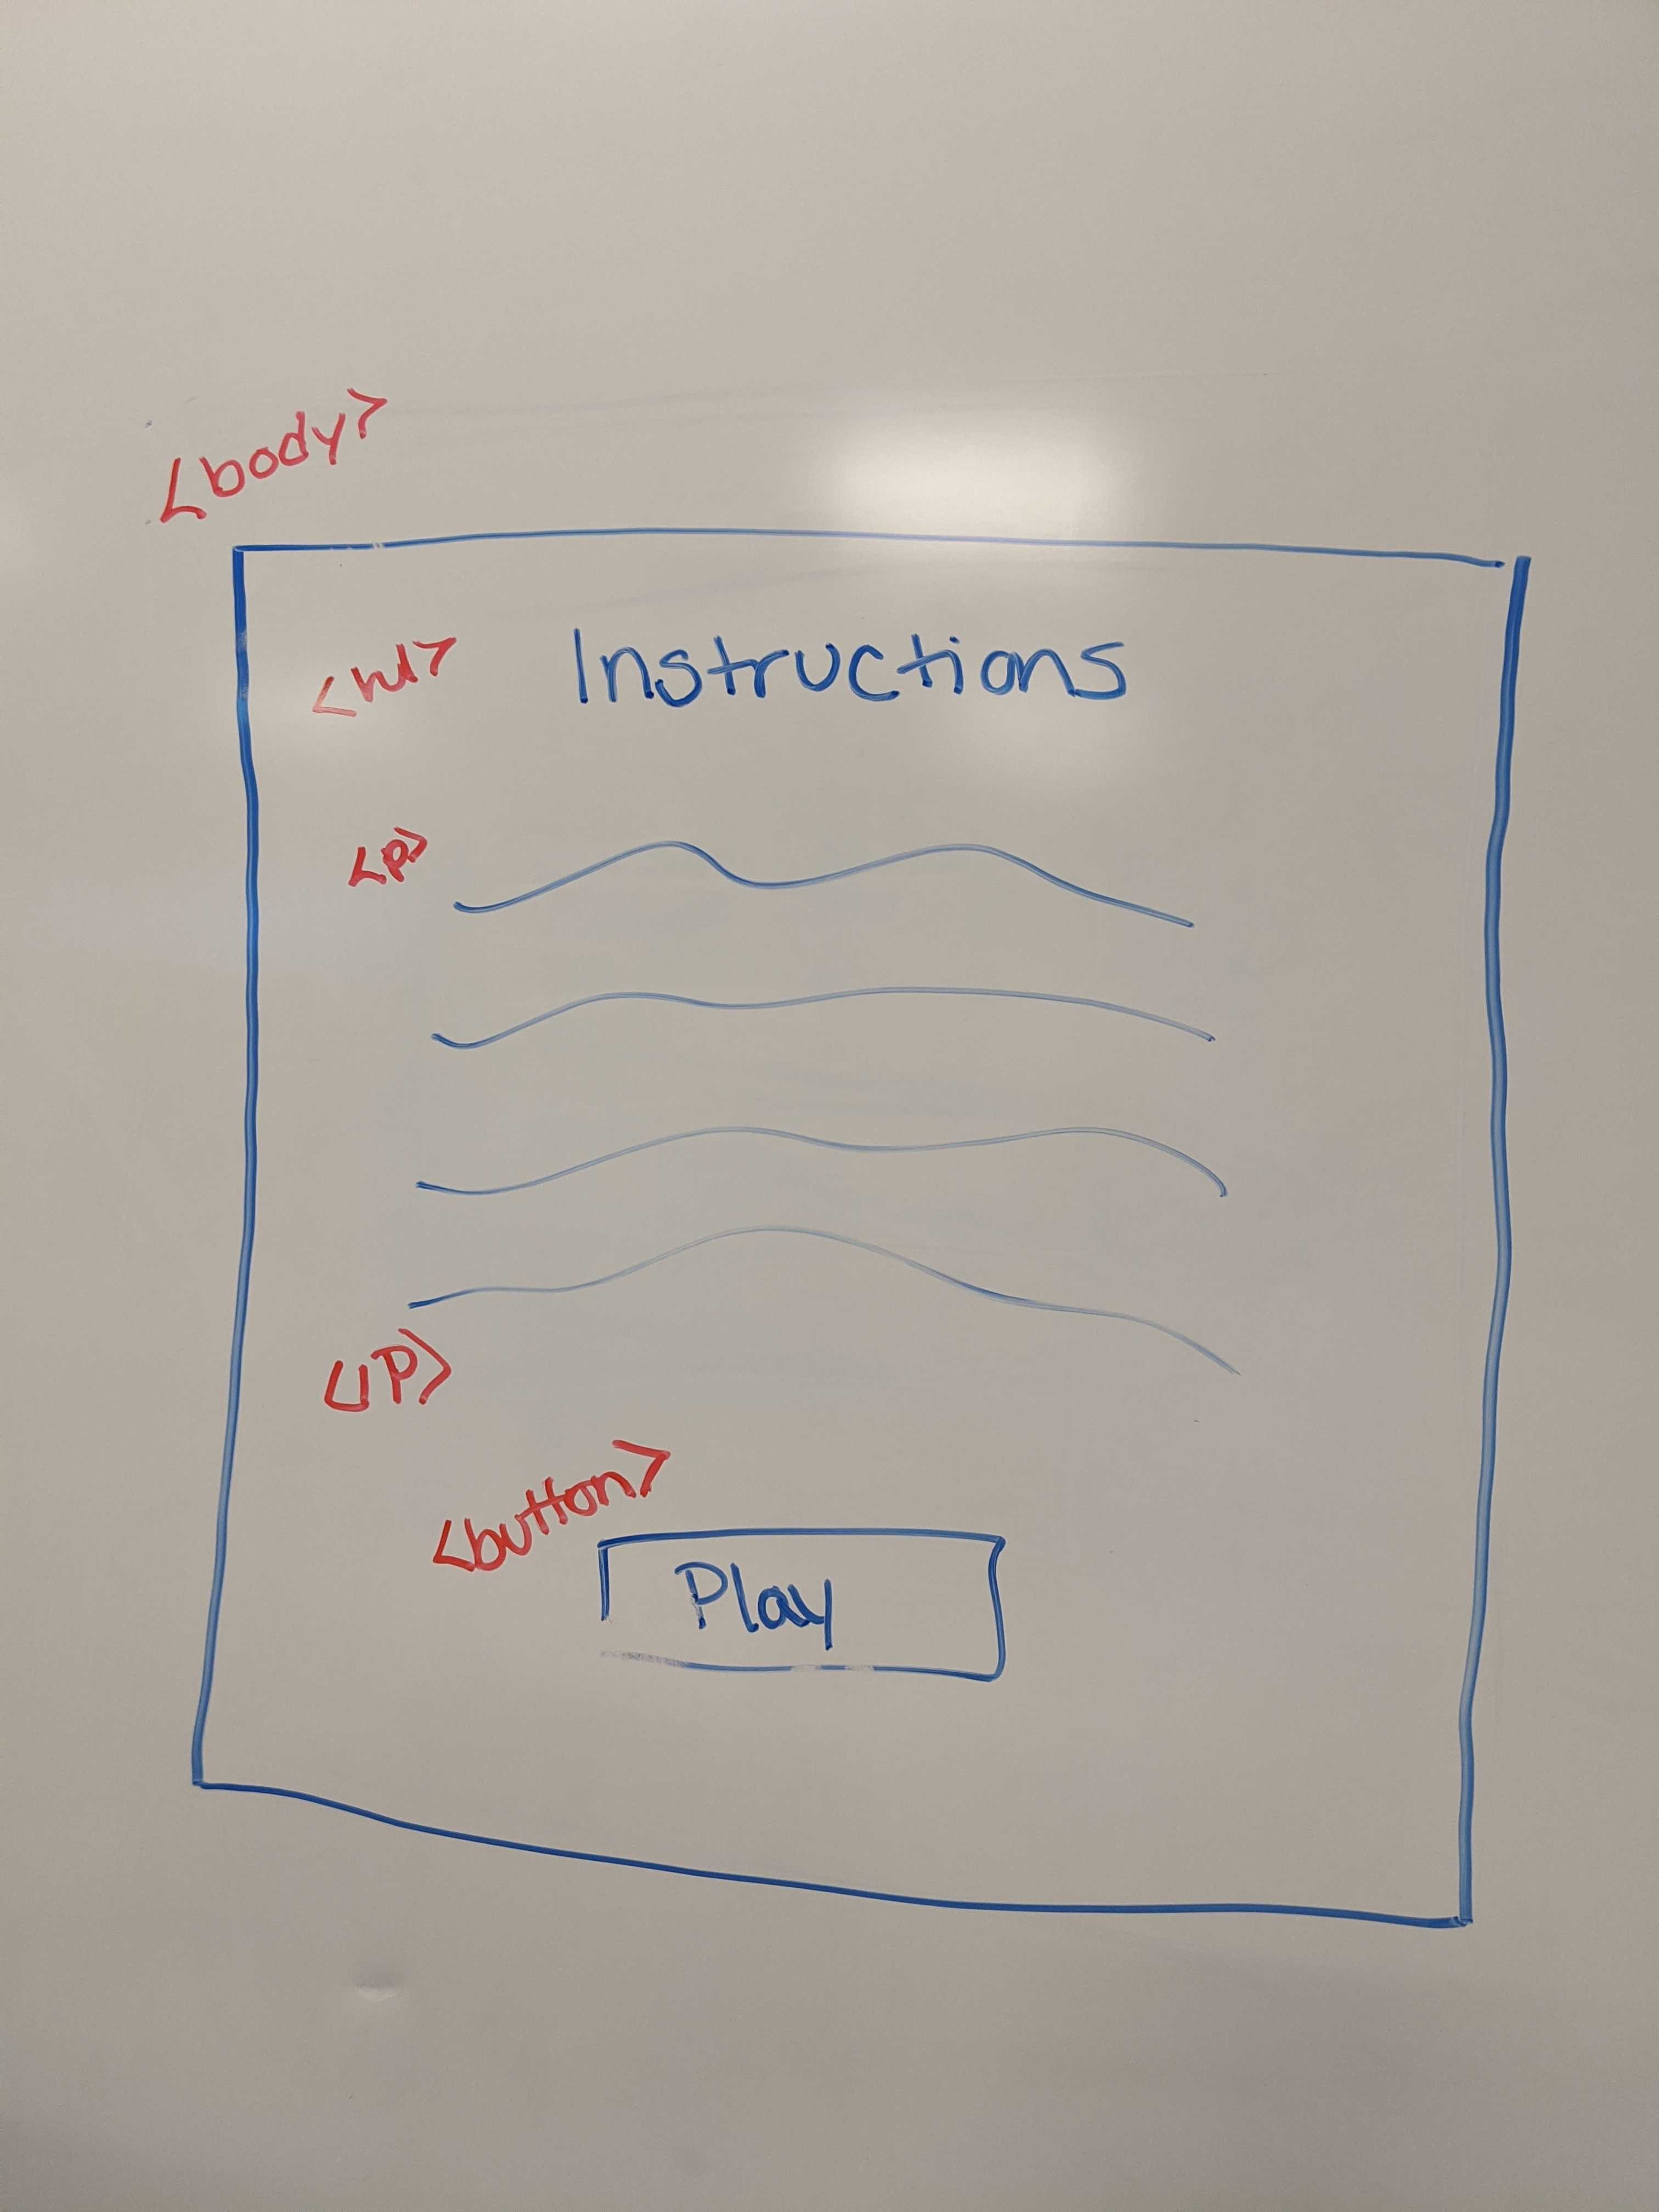 <body>
<h1> Instructions
<p>
</P>
<button>
Play